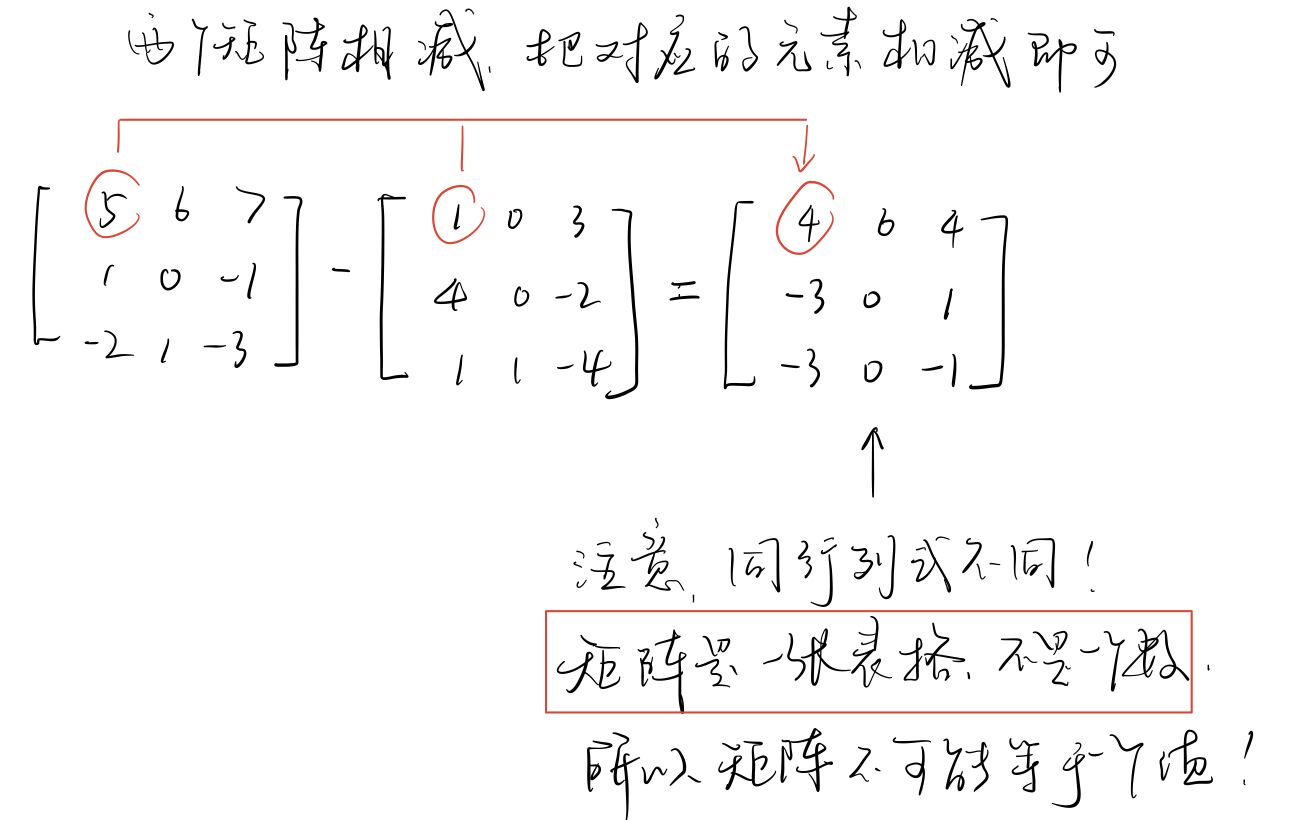 两个矩阵相减，把对应的元素相减即可
[ 5 6 7 ] - [ 1 0 3 ] = [ 4 6 4 ]
[ 1 0 -1 ] [ 4 0 -2 ] [ -3 0 1 ]
[ -2 1 -3 ] [ 1 1 -4 ] [ -3 0 -1 ]
注意，同行列式不同！
矩阵是一张表格，不是一个数．
所以矩阵不可能等于一个值！